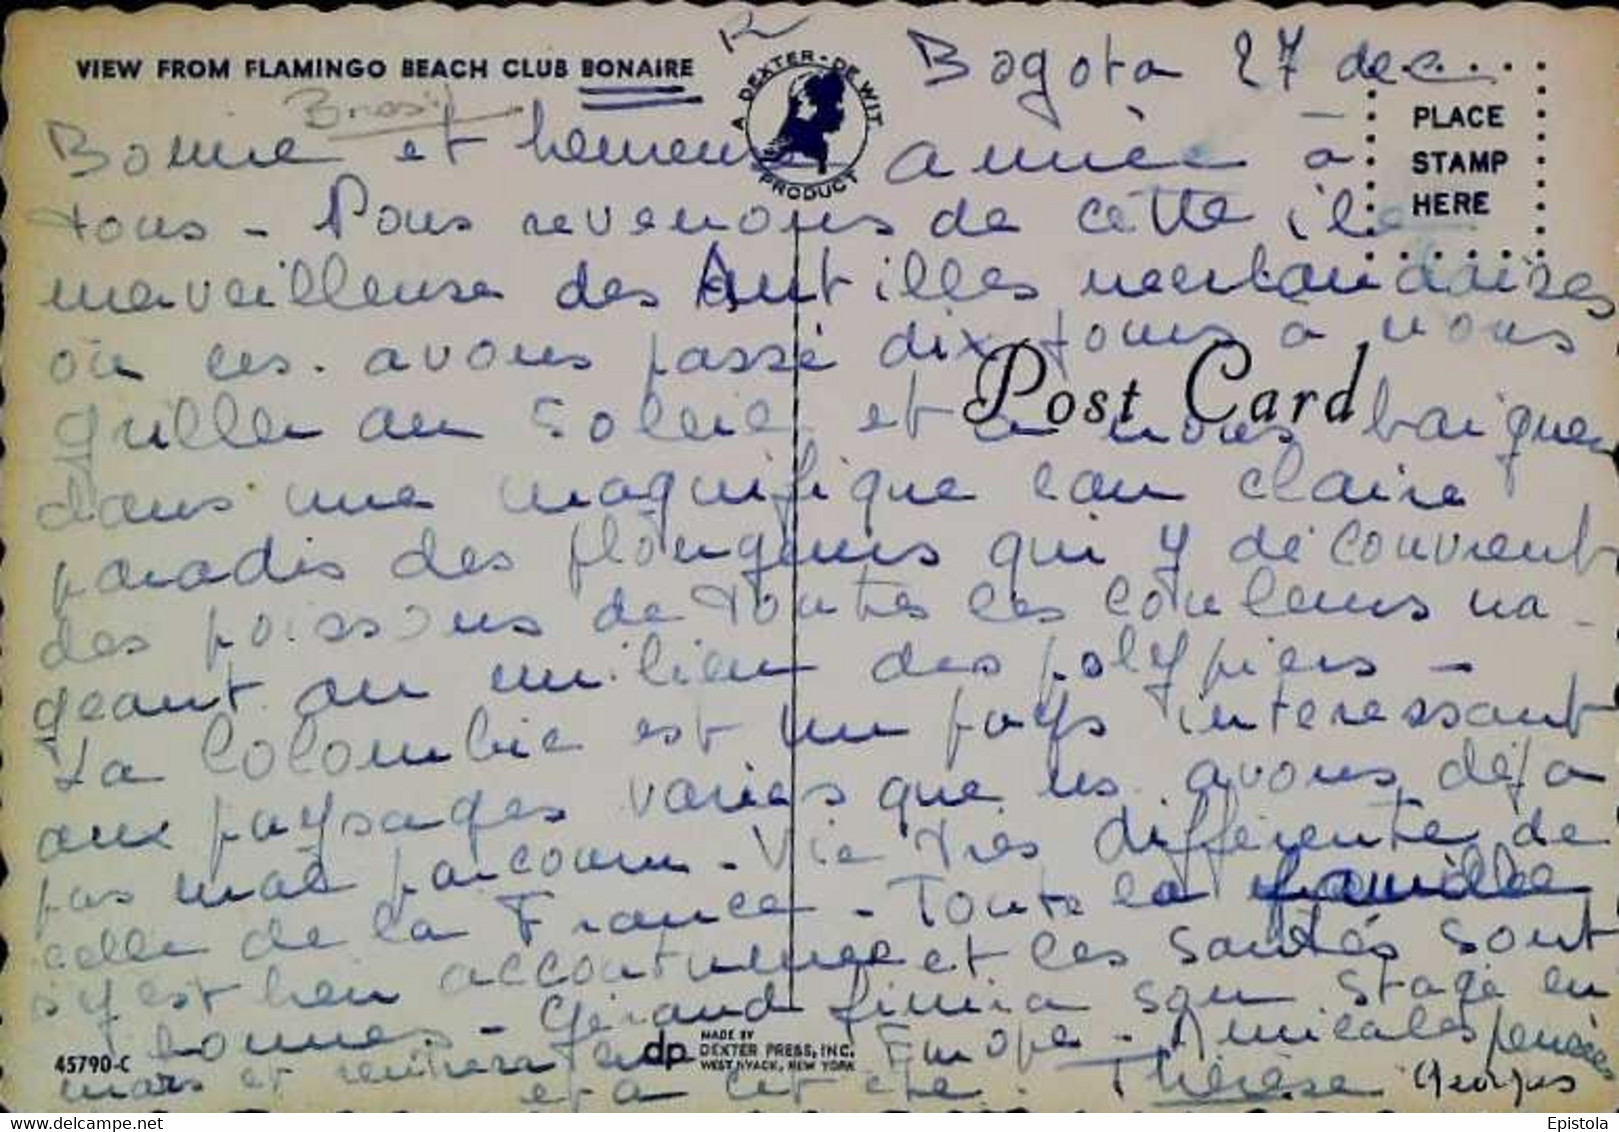 VIEW FROM FLAMINGO BEACH CLUB BONAIRE
Bresil
A DEXTER-DE WIT PRODUCT
Bogota 27 dec
PLACE
STAMP
HERE
Bonne et heureuse année à
tous - Nous revenons de cette île
merveilleuse des Antilles neerlandaises
où ns. avons passé dix jours à nous
griller au soleil et à nous baigner
Post Card
dans une magnifique eau claire
paradis des plongeurs qui y découvrent
des poissons de toutes les couleurs na-
geant au milieu des polypiers -
La Colombie est un pays interessant
aux paysages variés que ns. avons déjà
pas mal parcouru - Vie très différente de
celle de la France - Toute la famille
s'y est bien accoutumee et les santés sont
bonnes - Gérard finira son stage en
mars et rentrera en Europe - Amicales pensées
et à cet été. Thérèse Georges
45790-C
dp MADE BY
DEXTER PRESS, INC.
WEST NYACK, NEW YORK
Epistola